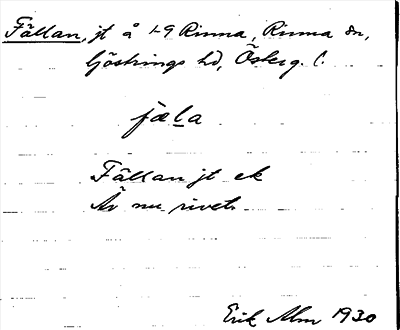 Fällan, jt å 1-9 Rinna, Rinna sn,
Göstrings hd, Österg. l.
fæla
Fällan jt ek
Är nu rivet.
Erik Alm 1930